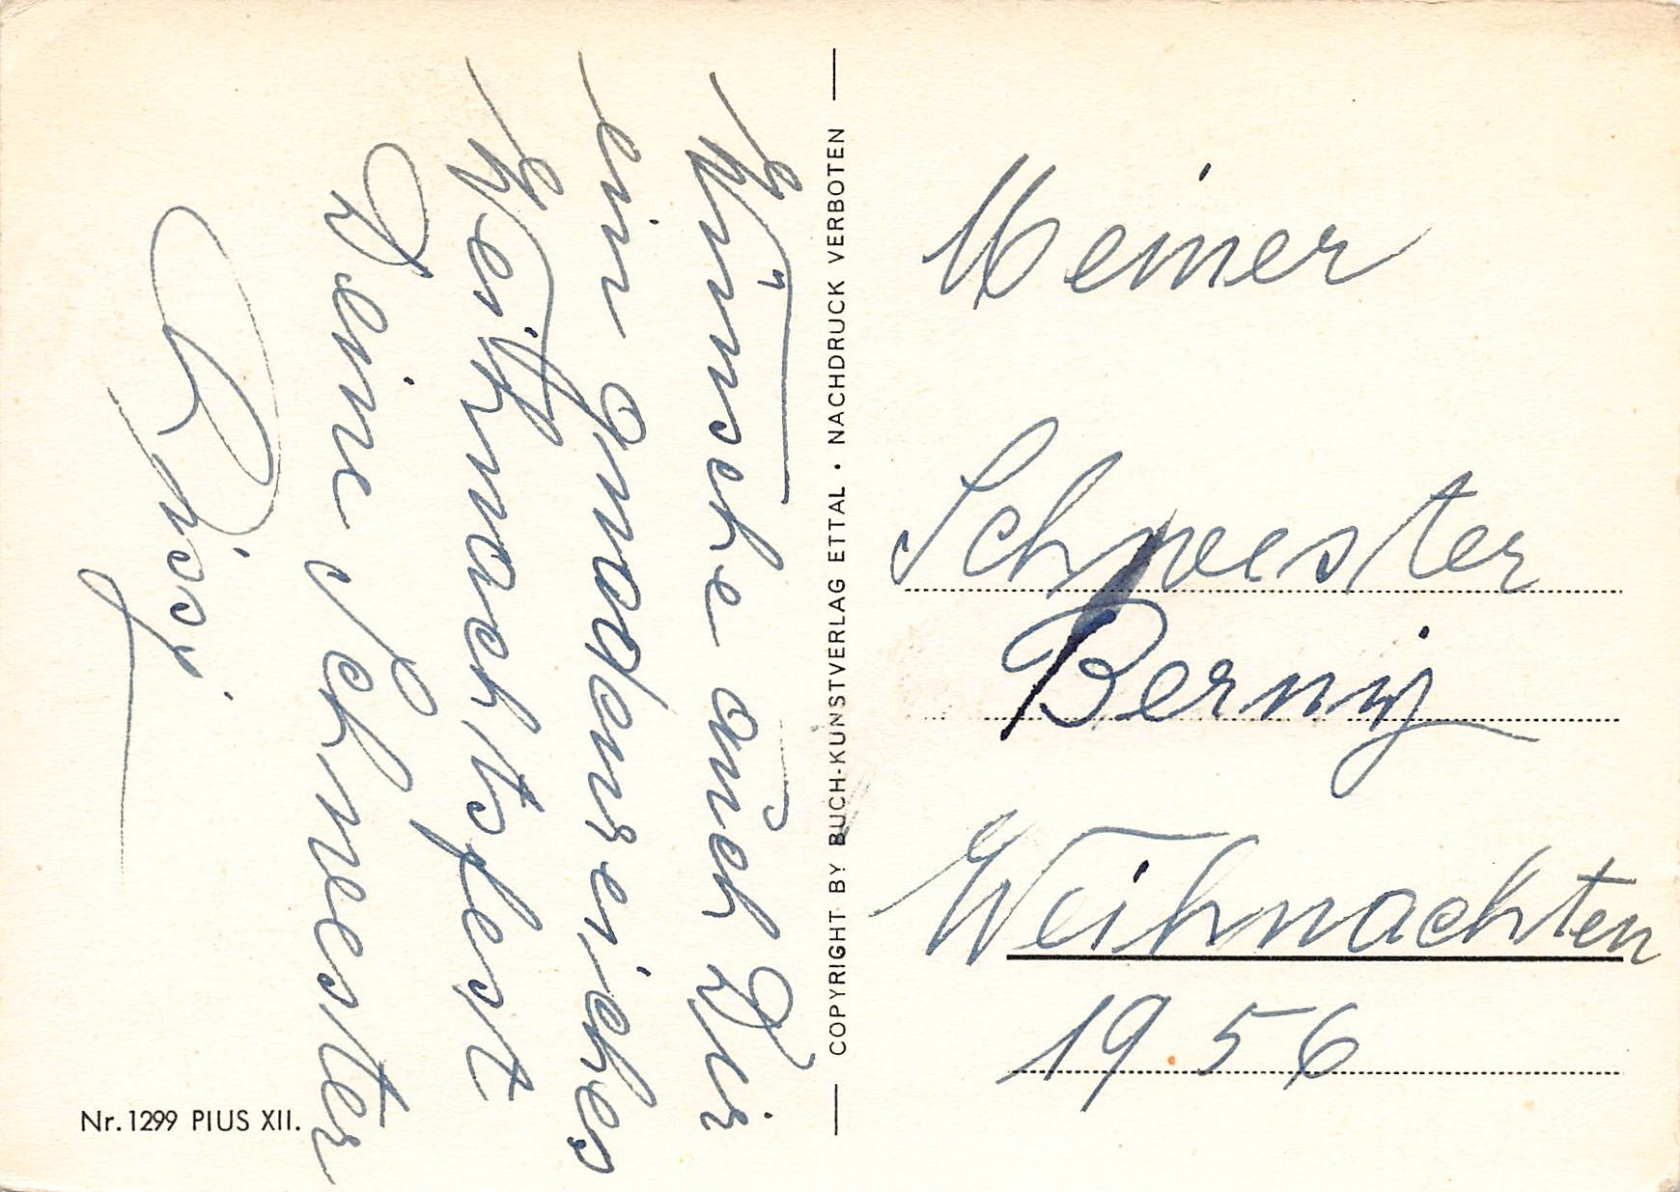 Wünsche auch Dir
ein gnadenreiches
Weihnachtsfest
Deine Schwester
COPYRIGHT BY BUCH-KUNSTVERLAG ETTAL • NACHDRUCK VERBOTEN
Meiner
Schwester
Berny
Weihnachten
1956
Nr. 1299 PIUS XII.